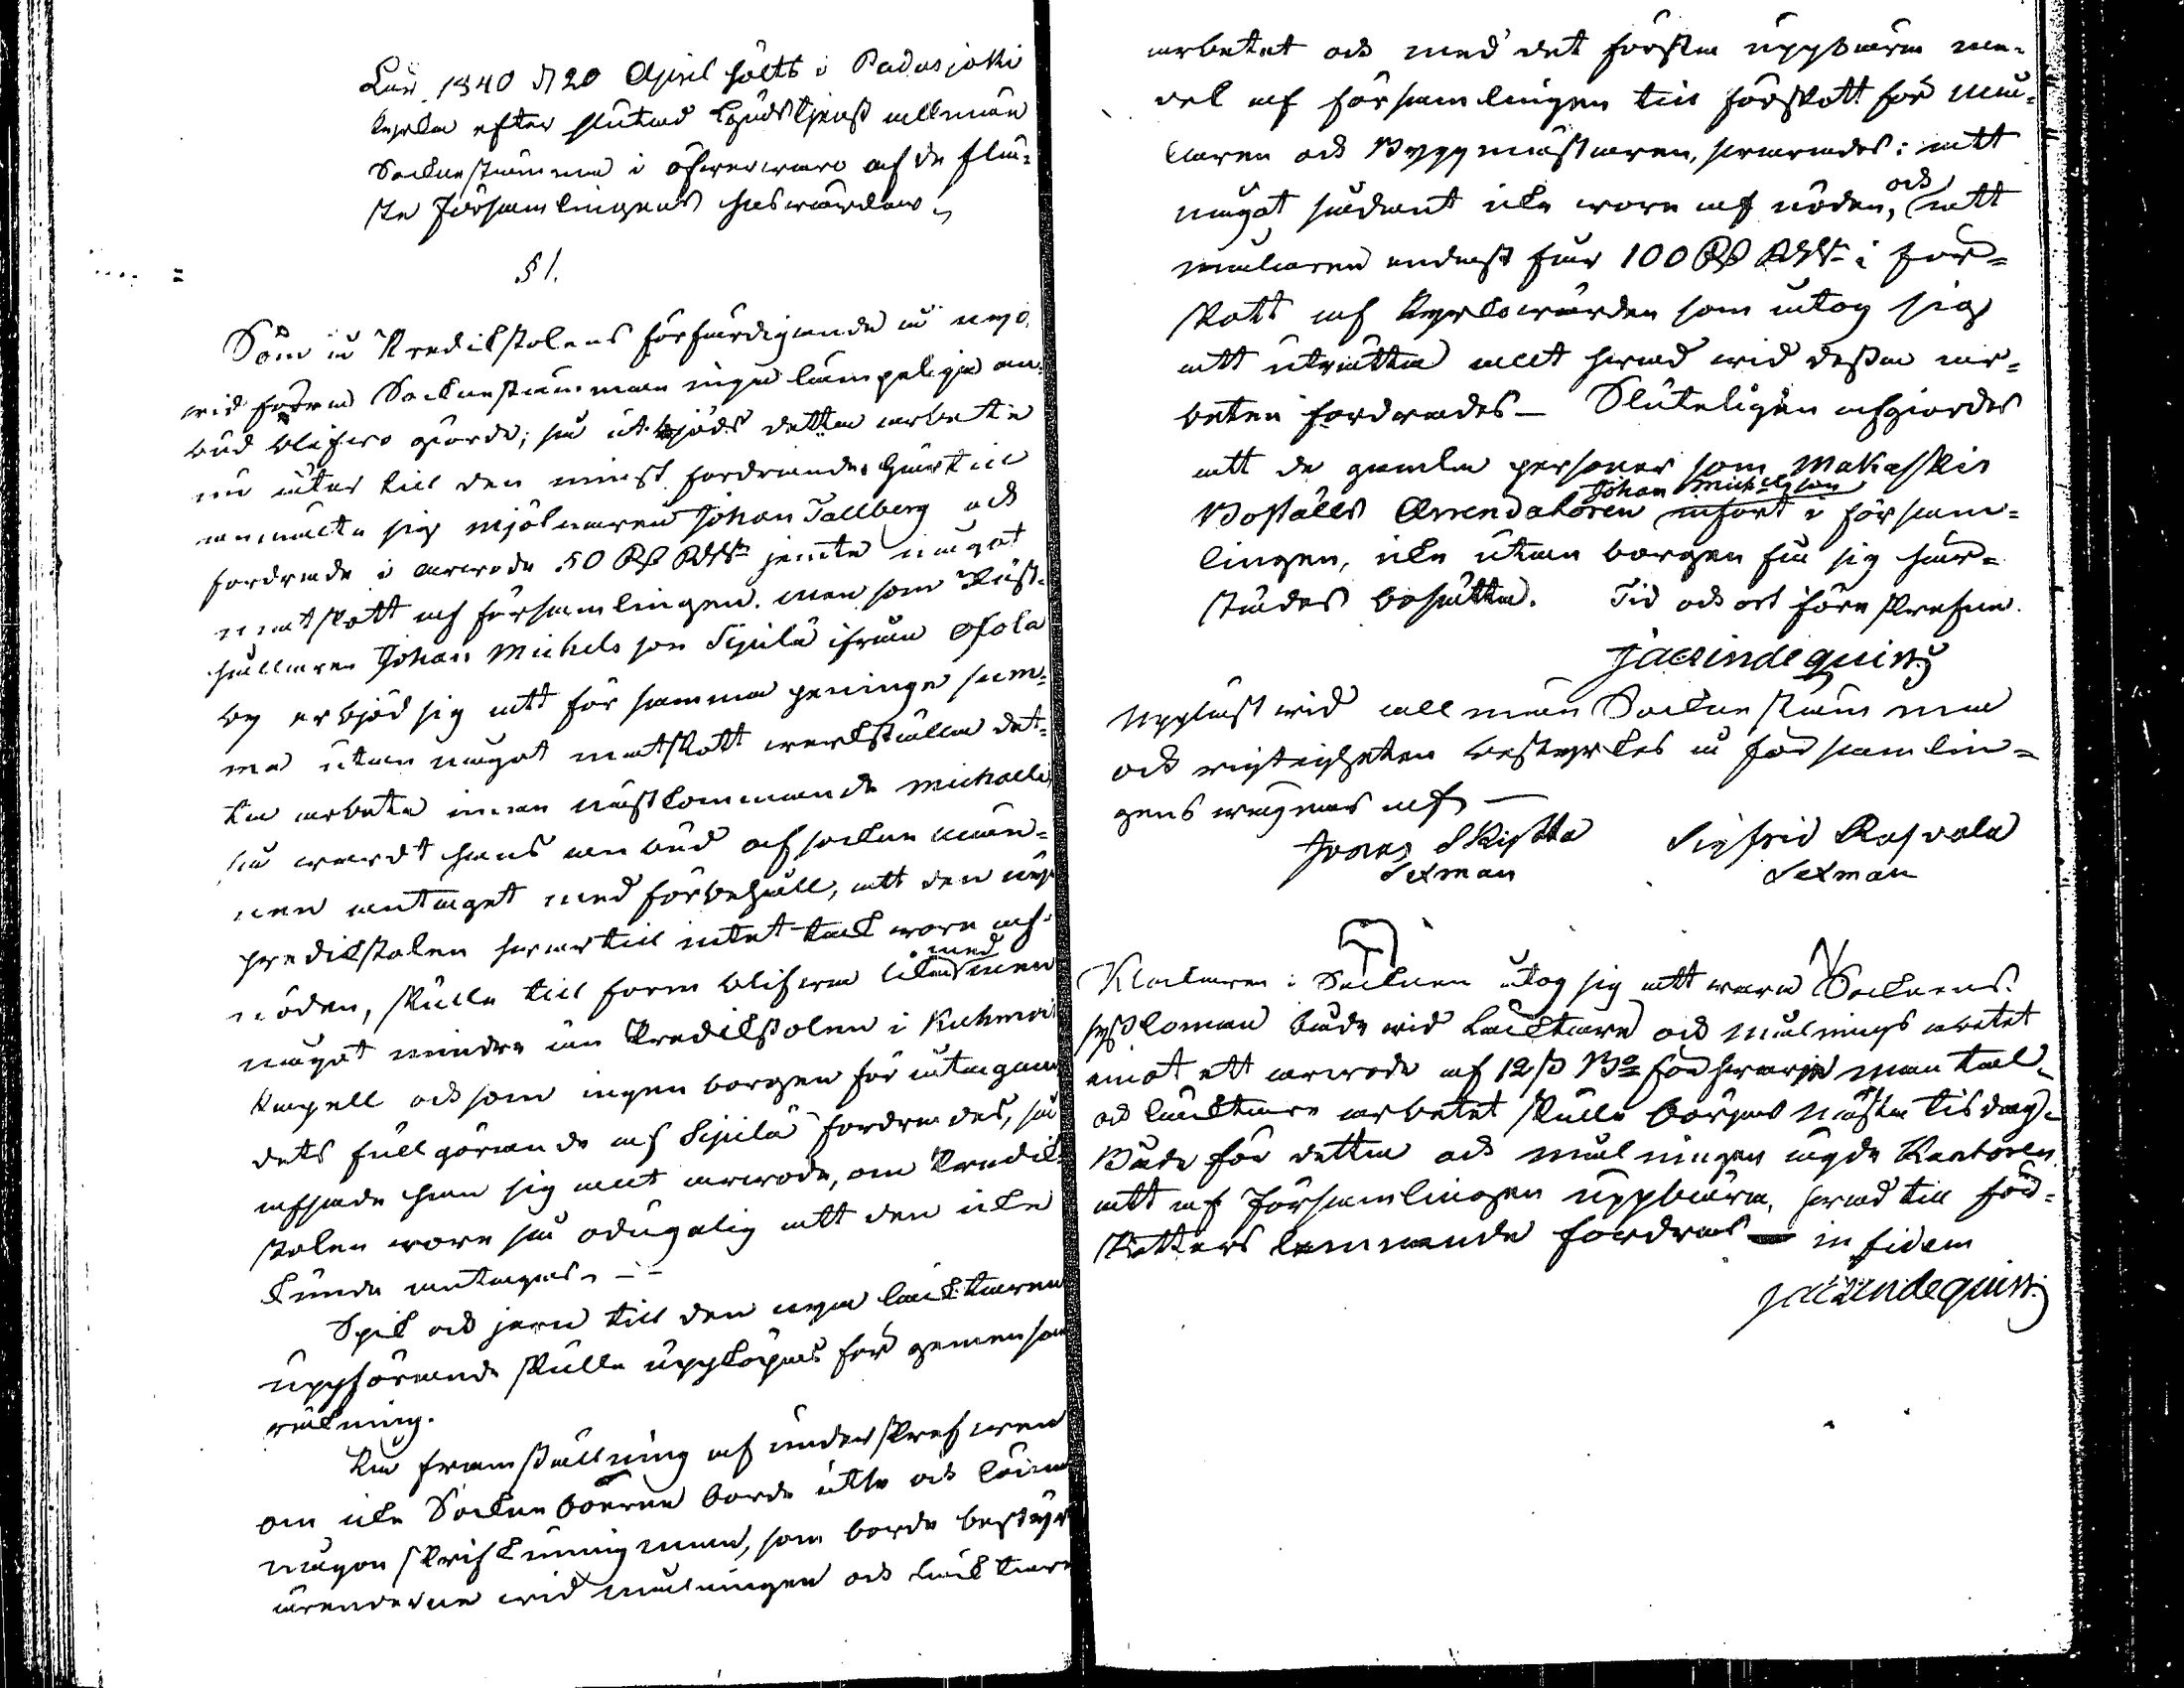 Åhr 1840 d 20 April hölts i Padasjoki
kyrka efter slutad Gudstjenst allmän
Sockenstämma i öfwerwaro af de fläs-
ta församlingens huswärdar,
§ 1.
Som å Predikstolens förfärdigande å nyo
wid förra Sockenstämman inga lämpeliga an-
bud blifwo gjorde; så utbjöds detta arbete
nu åter till den minst fordrande. Härtill
anmälte sig mjölnaren Johan Tallberg och
fordrade i arwode 50 Rb jemte något
matskott af församlingen. men som Rust-
hållaren Johan Michelsson Sipilä ifrån Osola
by erbjöd sig att för samma peninge sum-
ma utan något matskott werkställa det-
ta arbete innan nästkommande Michaelis
så wardt hans anbud af socknemän-
nen antaget med förbehåll, att den nya
predikstolen hwartill intet tack wore af
nöden, skulle till form blifwa lika men
med
något mindre än Predikstolen i Kuhmois
kapell och som ingen borgen för åtagan-
dets fullgörande af Sipilä fordrades, så
afsade han sig allt arwode, om Predik-
stolen wore så oduglig att den icke
kunde antagas. --
Spik och jern till den nya läcktaren
uppförande skulle uppköpas för gemensam
räkning.
På framställning af underskrefwen
om icke Sockneboerne borde utse och löna
någon skrifkunnig man, som borde bestyra
ärenderne wid målningen och läcktare
arbetet och med det första uppbära me-
del af församlingen till förskott för må-
laren och Byggmästaren, swarades: att
något sådant icke wore af nöden, att
och
målaren endast får 100 Rb i för-
skott af kyrkowärden som åtog sig
att uträtta allt hwad wid dessa ar-
beten fordrades — Sluteligen afgjordes
att de gamla personer som Makaskis
Boställs Arrendatoren infört i försam-
Johan Michelsson
lingen, icke utan borgen få sig här-
städes bosätta. Tid och ort förr skrefne.
Jac Lindequist
Uppläst wid allmän Sockenstämma
och rigtigheten bestyrkes å församlin-
gens wägnar af —
Jonas Skyttä Sigfrid Raswala
Sexman Sexman
Klockaren i Socknen åtog sig att wara Socknens
syssloman både wid Läcktare och målnings arbetet
emot ett arwode af 12 s Bo för hwarje mantal
och läcktare arbetet skulle börjas nästa tisdag.
Både för detta och målningen ägde Kantoren
att af församlingen uppbära, hwad till för-
skotters lemnande fordras — in fidem
Jac Lindequist